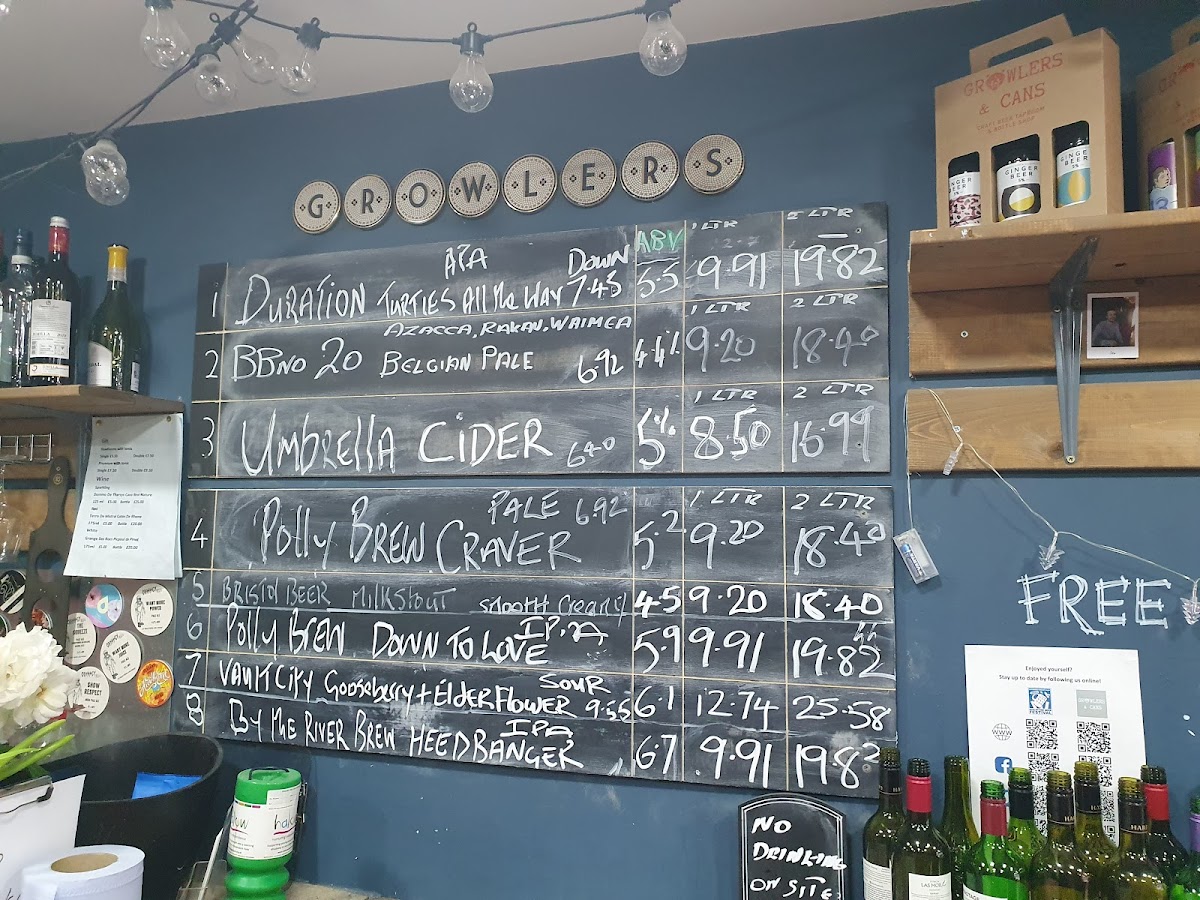 GROWLERS
ABV 1 LTR 2 LTR
APA DOWN
1 DURATION TURTLES ALL THE WAY 7.45 5.5 9.91 19.82
AZACCA, RAKAU, WAIMEA 1 LTR 2 LTR
2 BBNO 20 BELGIAN PALE 6.92 4.4% 9.20 18.40
1 LTR 2 LTR
3 UMBRELLA CIDER 6.40 5% 8.50 16.99
PALE 6.92 1 LTR 2 LTR
4 POLLY BREW CRAVER 5.2 9.20 18.40
5 BRISTOL BEER MILKSTOUT SMOOTH CREAMY 4.5 9.20 18.40
IPA
6 POLLY BREW DOWN TO LOVE 5.9 9.91 19.82
SOUR
7 VAULT CITY GOOSEBERRY + ELDERFLOWER 9.55 6.1 12.74 25.58
IPA
8 BY THE RIVER BREW HEEDBANGER 6.7 9.91 19.82
GROWLERS
& CANS
CRAFT BEER TAPROOM
& BOTTLE SHOP
GINGER
BEER
GINGER
BEER
GINGER
BEER
FREE
Enjoyed yourself?
Stay up to date by following us online!
WWW
NO
DRINKING
ON SITE
Wine
WANT MORE
POWER
SHOW
RESPECT